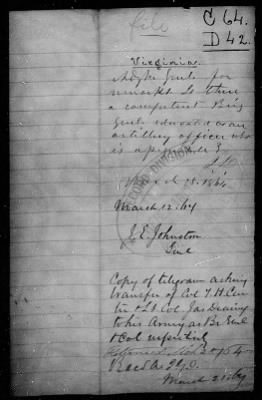 file
C 64.
D 42.
Virginia.
Adjt Genl. for
remarks. Is there
a competent Brig
Genl. educated as an
artillery officer who
is
March 18. 1864
March 12. 64
J. E. Johnston
Genl
Copy of telegram asking
transfer of Col T. H. Car
ter & Lt Col Jas Dearing
to his Army as Br Genl
& Col
A. & I. G. O.
March 21/64